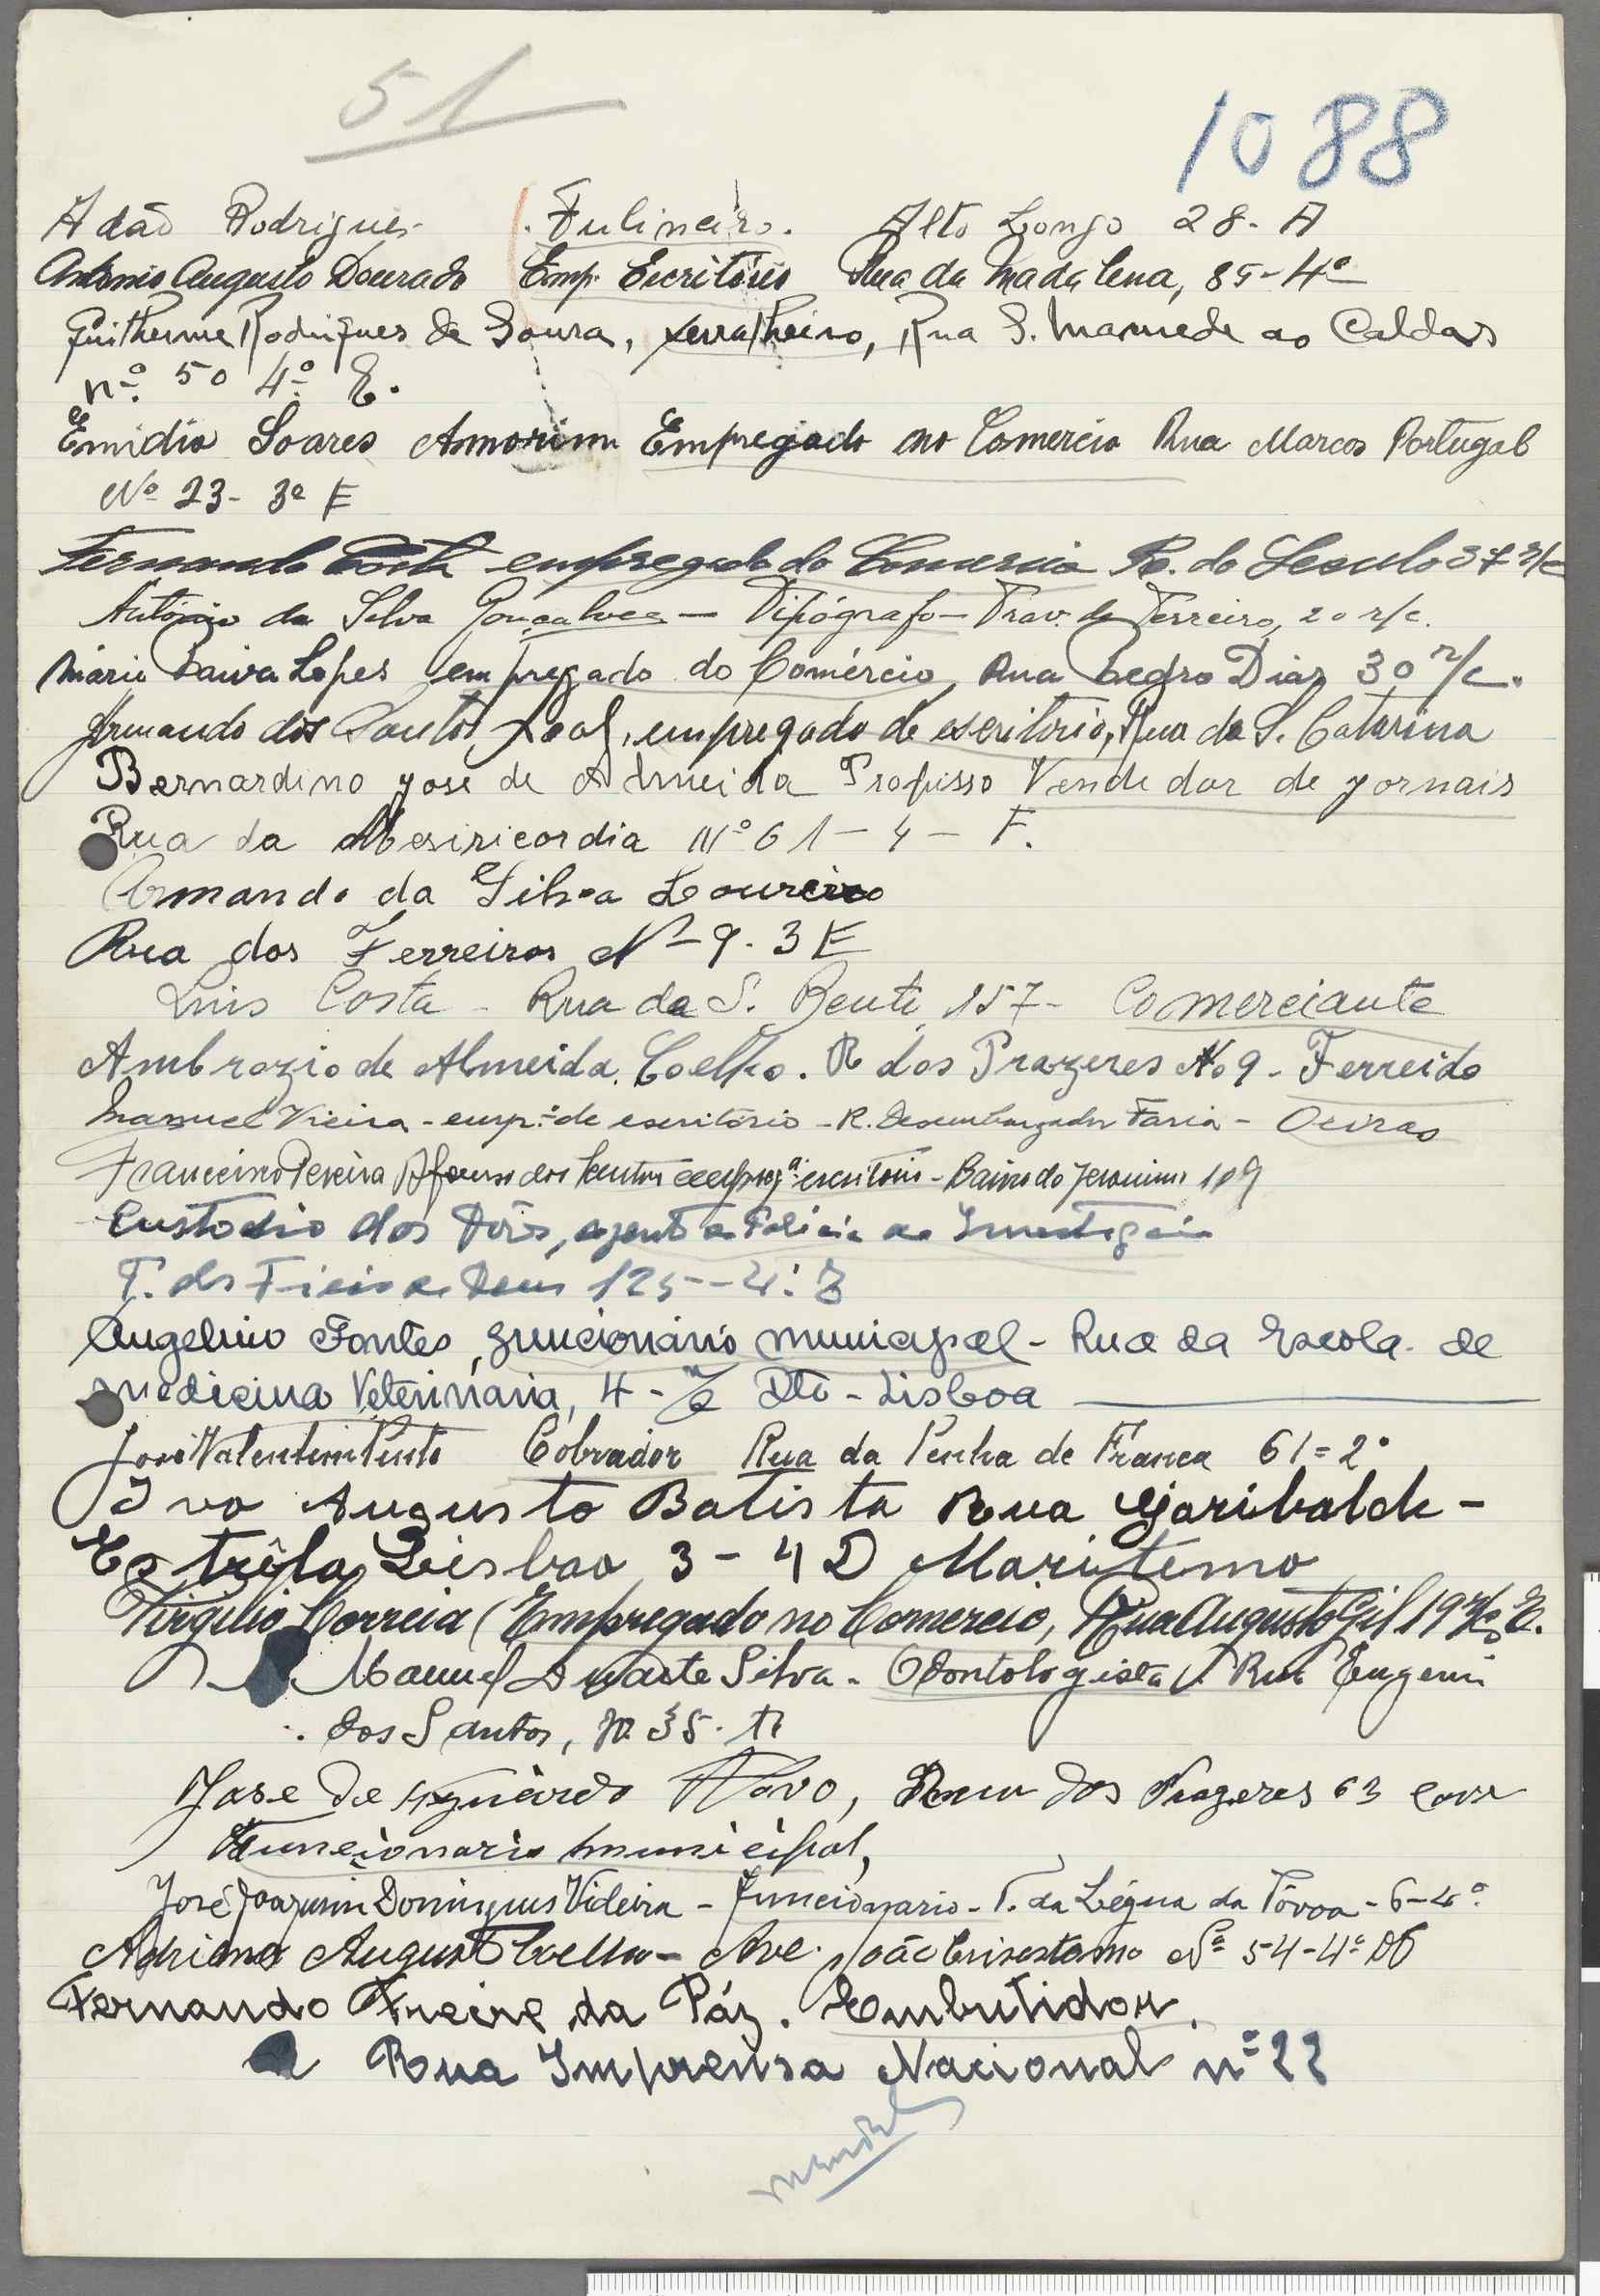 51
1088
Adão Rodrigues Fulineiro. Alto Longo 28-A
Antonio Augusto Dourado Emp. Escritório Rua da Madalena, 85-4º
Guilherme Rodrigues de Soura, serralheiro, Rua S. Mamede ao Caldas
nº 50 4º E.
Emidio Soares Amorim Empregado no Comercio Rua Marcos Portugal
Nº 23- 3º E
Fernando Costa empregado do Comercio R. do Seculo 37 r/c
António da Silva Gonçalves — Tipógrafo — Trav. do Terreiro, 20 r/c.
Mário Paiva Lopes empregado do Comércio, Rua Pedro Dias 30 r/c.
Armando dos Santos Leal, empregado de escritório, Rua de S. Catarina
Bernardino José de Almeida Profisso Vendedor de jornais
Rua da Mesiricordia Nº 61-4- F.
Armando da Silva Loureiro
Rua dos Ferreiros Nº 9. 3 E
Luis Costa - Rua de S. Bento, 157- Comerciante
Ambrozio de Almeida Coelho. R dos Prazeres Nº 9 - Ferreido
Manuel Vieira - emp.º de escritório - R. Desembargador Faria - Oeiras
Pereira Afonso dos Santos escritorio - Bairro do 109
Custodio dos agente Policia de
T. dos Fieis de Deus 125--4º
Angelino Fontes, funcionário municipal - Rua da Escola de
medicina Veterinária, 4 - Dto - Lisboa
José Valentim Pinto Cobrador Rua da Penha de França 61=2º
Ivo Augusto Batista Rua Garibalde-
Estrêla, Lisboa 3-4 D Maritemo
Virgilio Correia (Empregado no Comercio, Rua Augusto Gil 19 r/c E.
Manuel Duarte Silva - Odontologista Rua Eugenio
dos Santos, 35.
Jose de Novo, Rua dos Prazeres 63 cave
Funcionario municipal,
José Joaquim Domingues Videira - Funcionario - T. da Légua da Póvoa - 6-4º
Adriano Augusto Coelho - Ave. João Crisostomo Nº 54-4º Dt
Fernando Freire da Páz. Embutidor.
Rua Imprensa Nacional nº 22